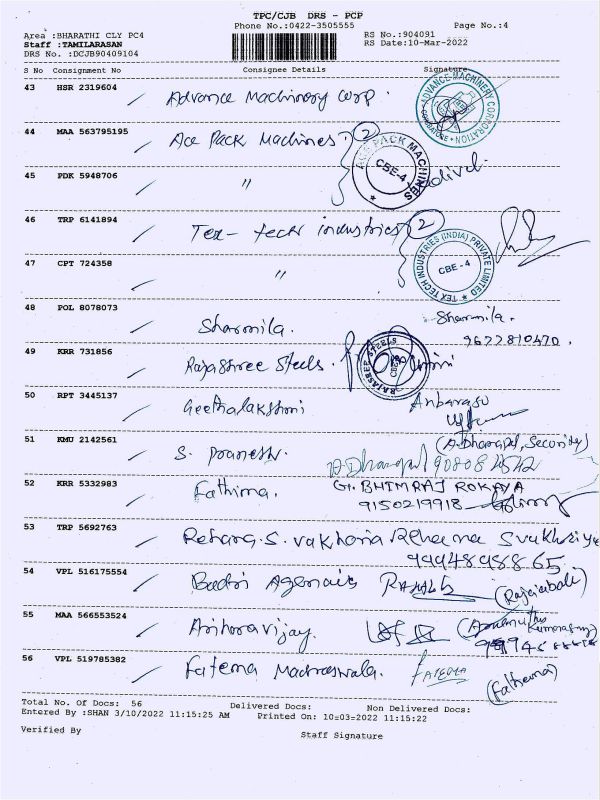 TPC/CJB DRS - PCP
Phone No.:0422-3505555 Page No.:4
Area :BHARATHI CLY PC4 RS No.:904091
Staff :TAMILARASAN RS Date:10-Mar-2022
DRS No. :DCJB90409104
S No Consignment No Consignee Details Signature
43 HSR 2319604 Advance Machinery Corp. ADVANCE MACHINERY CORPORATION COIMBATORE
44 MAA 563795195 Ace Pack Machines. 2 ACE PACK MACHINES CBE-4
45 PDK 5948706 "
46 TRP 6141894 Tex-tech industries 2
47 CPT 724358 " TEX TECH INDUSTRIES (INDIA) PRIVATE LIMITED CBE-4
48 POL 8078073 Sharmila. Sharmila
9622810470.
49 KRR 731856 Rajashree Steels. RAJASREE STEELS
50 RPT 3445137 Geethalakshmi Anbarasu
51 KMU 2142561 S. Pranesh. (A.Dhanapal, Security)
A.Dhanapal
52 KRR 5332983 Fathima. Gr. BHIMRAJ ROKAYA
9150219918
53 TRP 5692763
9994898865
54 VPL 516175554 Badri Agencies
55 MAA 566553524
56 VPL 519785382 Fatema Madraswala. FATEMA
(Fathema)
Total No. Of Docs: 56 Delivered Docs: Non Delivered Docs:
Entered By :SHAN 3/10/2022 11:15:25 AM Printed On: 10-03-2022 11:15:22
Verified By Staff Signature